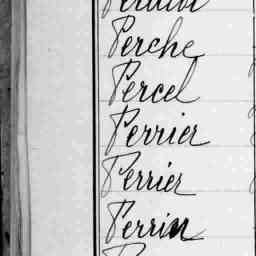 Perche
Percel
Perrier
Perrier
Perrin